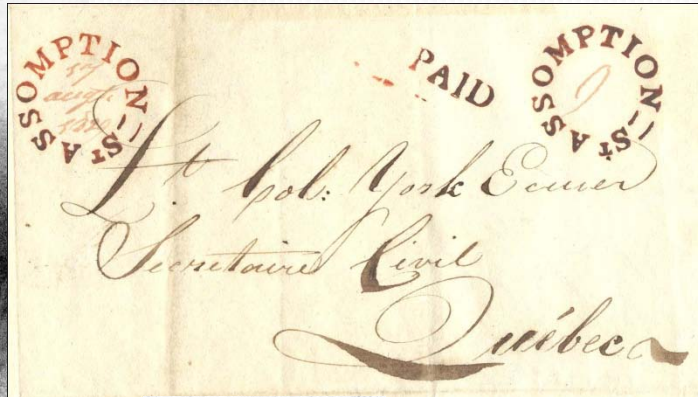 ASSOMPTION-St
PAID
ASSOMPTION-St
9
Lt Col: York Ecuier
Secretaire Civil
Québec